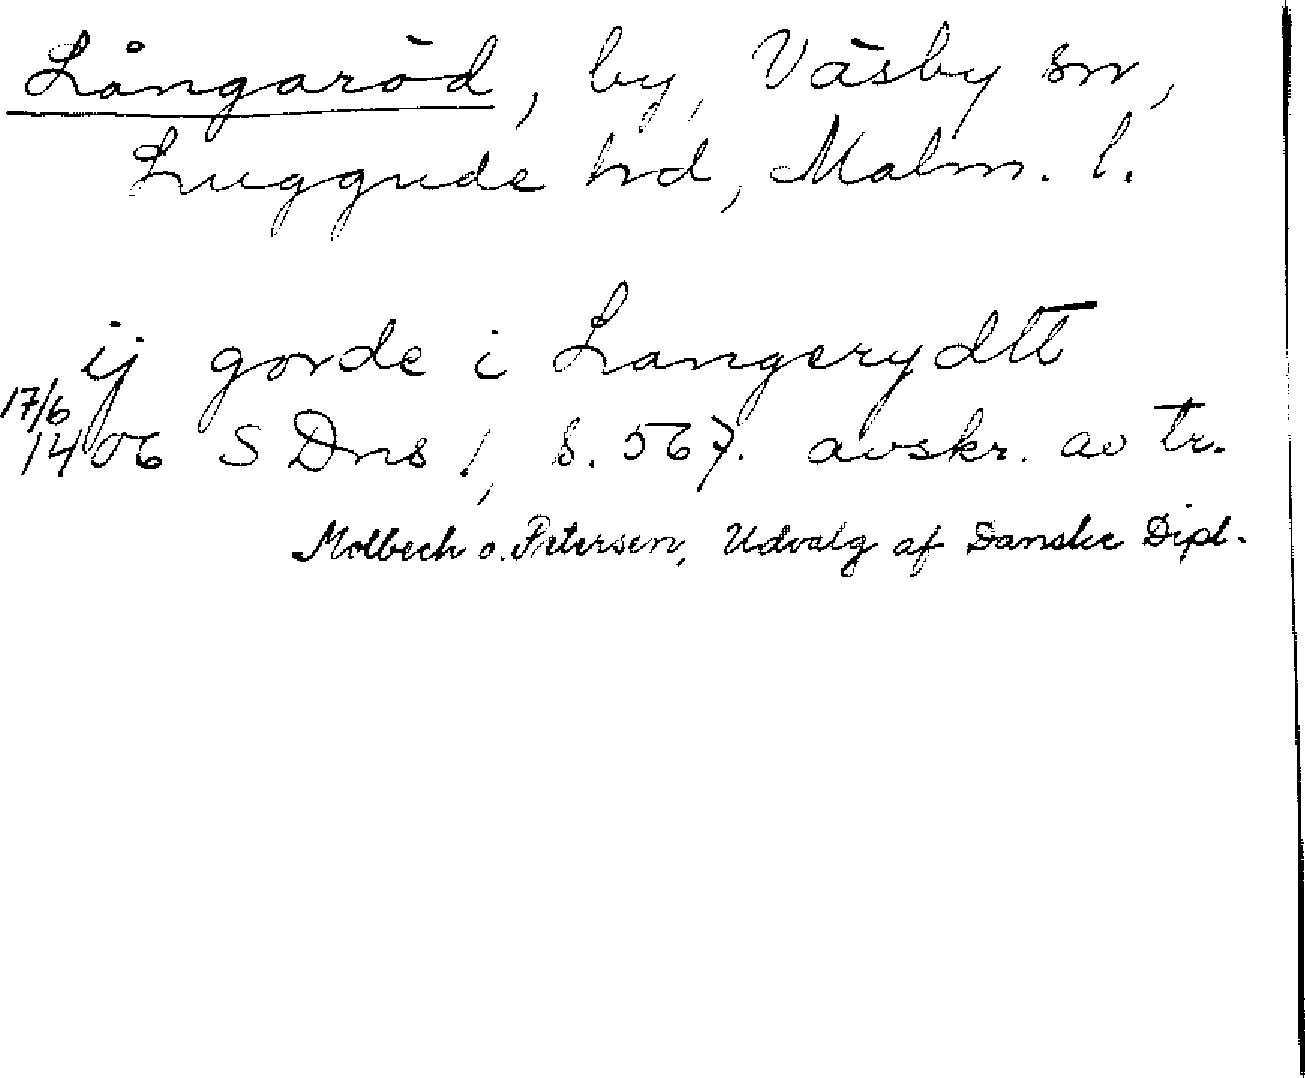 Långaröd, by, Väsby sn,
Luggude hd, Malm. l.
ij gorde i Langerydtt
17/6
1406 SDns 1, s. 567. avskr. av tr.
Molbech o. Petersen, Udvalg af Danske Dipl.